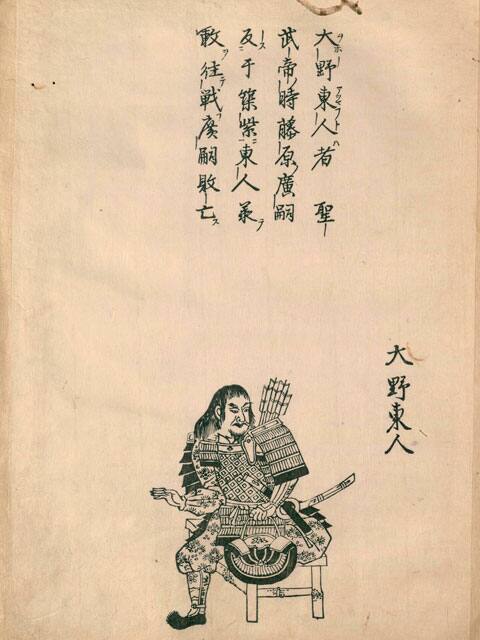 大野東人
大野東人者聖
武帝時藤原廣嗣
反于築紫東人承
敕往戰廣嗣敗亡